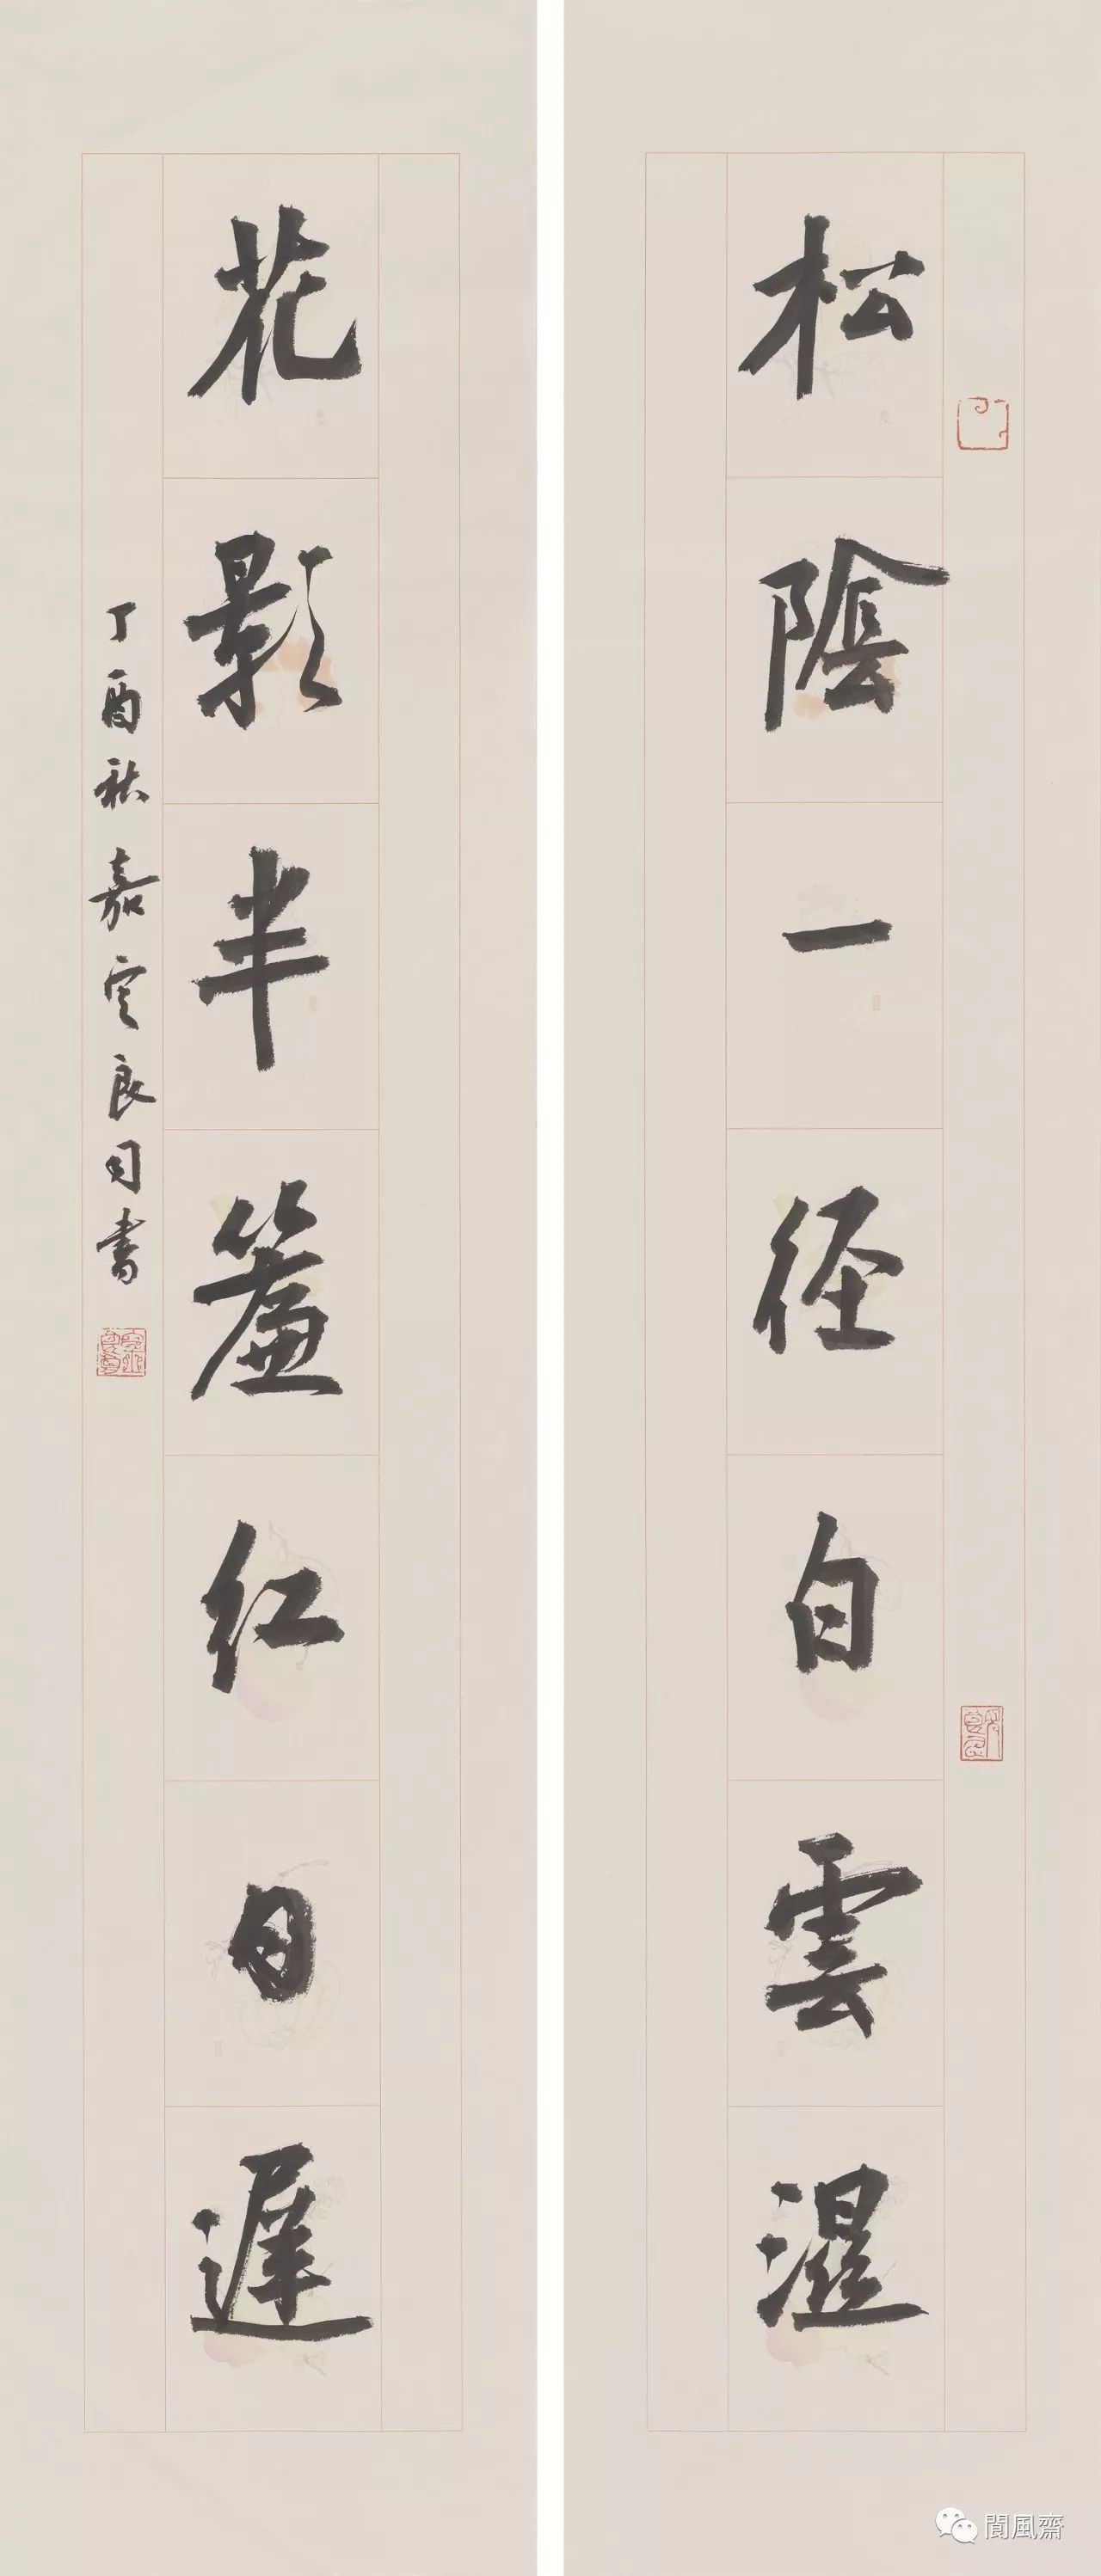 松陰一径白雲濕
花影半簾红日遲
丁酉秋嘉定良司書
閬風齋